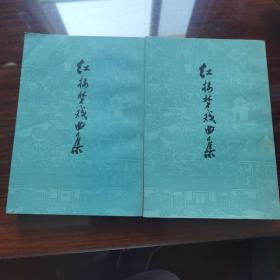 红楼梦戏曲集
红楼梦戏曲集